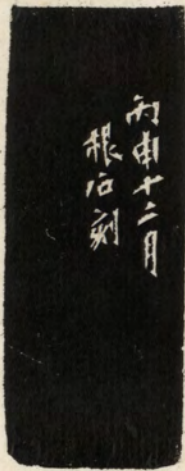 丙申十二月
根石刻